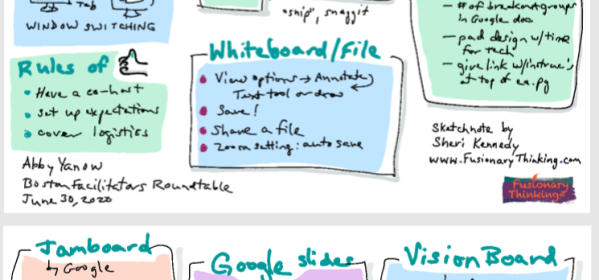 Tab
WINDOW SWITCHING
"snip", snaggit
- # of breakout groups
in Google doc
- pad design w/time
for tech
- give link w/instruc's
at top of ea. pg
Rules of
• Have a co-host
• Set up expectations
• cover logistics
Whiteboard/File
• View options → Annotate
Text tool or draw
• Save!
• Share a file
• Zoom setting: auto save
Abby Yanow
Boston Facilitators Roundtable
June 30, 2020
Sketchnote by
Sheri Kennedy
www.FusionaryThinking.com
Fusionary
Thinking
Jamboard
by Google
Google slides
Vision Board